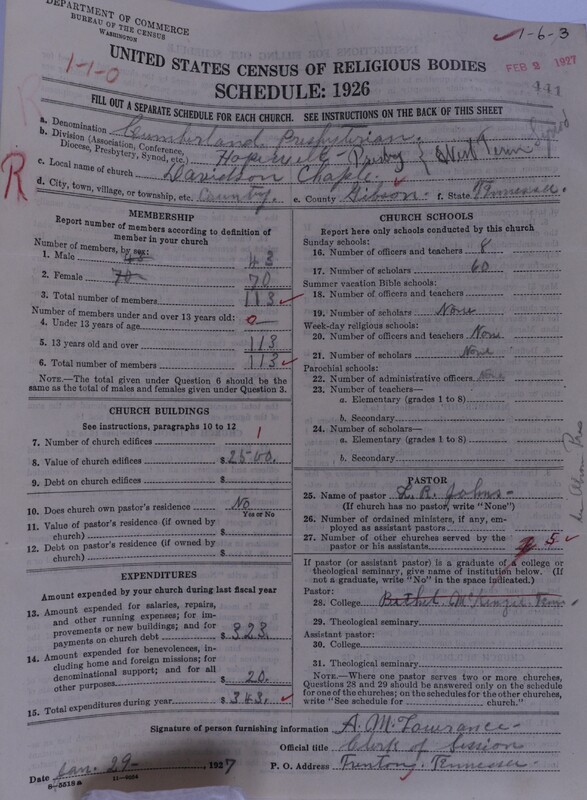 DEPARTMENT OF COMMERCE
BUREAU OF THE CENSUS
WASHINGTON
1-6-3
FEB 2 1927
441
1-1-0
UNITED STATES CENSUS OF RELIGIOUS BODIES
SCHEDULE: 1926
FILL OUT A SEPARATE SCHEDULE FOR EACH CHURCH. SEE INSTRUCTIONS ON THE BACK OF THIS SHEET
R
a. Denomination Cumberland Presbyterian.
b. Division (Association, Conference, Diocese, Presbytery, Synod, etc.) Hopewell - Presby { West Tenn Synod
c. Local name of church Davidson Chaple.
d. City, town, village, or township, etc. County. e. County Gibson. f. State Tennessee.
MEMBERSHIP
Report number of members according to definition of member in your church
Number of members, by sex:
1. Male 43
2. Female 70 70
3. Total number of members 113
Number of members under and over 13 years old:
4. Under 13 years of age 0
5. 13 years old and over 113
6. Total number of members 113
NOTE.—The total given under Question 6 should be the same as the total of males and females given under Question 3.
CHURCH BUILDINGS
See instructions, paragraphs 10 to 12
7. Number of church edifices 1
8. Value of church edifices $2500.
9. Debt on church edifices $
10. Does church own pastor's residence? No
Yes or No
11. Value of pastor's residence (if owned by church) $
12. Debt on pastor's residence (if owned by church) $
EXPENDITURES
Amount expended by your church during last fiscal year
13. Amount expended for salaries, repairs, and other running expenses; for improvements or new buildings; and for payments on church debt $323
14. Amount expended for benevolences, including home and foreign missions; for denominational support; and for all other purposes $20.
15. Total expenditures during year $343.
CHURCH SCHOOLS
Report here only schools conducted by this church
Sunday schools:
16. Number of officers and teachers 8
17. Number of scholars 60
Summer vacation Bible schools:
18. Number of officers and teachers
19. Number of scholars None
Week-day religious schools:
20. Number of officers and teachers None
21. Number of scholars None
Parochial schools:
22. Number of administrative officers None
23. Number of teachers—
a. Elementary (grades 1 to 8)
b. Secondary
24. Number of scholars—
a. Elementary (grades 1 to 8)
b. Secondary
PASTOR
25. Name of pastor L. R. Johns
(If church has no pastor, write "None")
26. Number of ordained ministers, if any, employed as assistant pastors
27. Number of other churches served by the pastor or his assistants 5
If pastor (or assistant pastor) is a graduate of a college or theological seminary, give name of institution below. (If not a graduate, write "No" in the space indicated.)
Pastor:
28. College Bethel McKenzie Tenn
29. Theological seminary
Assistant pastor:
30. College
31. Theological seminary
NOTE.—Where one pastor serves two or more churches, Questions 28 and 29 should be answered only on the schedule for one of the churches; on the schedules for the other churches, write "See schedule for church."
Signature of person furnishing information A. M. Lowrance
Official title Clerk of Session
Date Jan. 29-, 1927 P. O. Address Trenton, Tennessee
8-5518a 11-9034